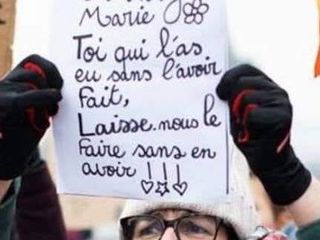 Marie
Toi qui l'as
eu sans l'avoir
fait,
Laisse-nous le
faire sans en
avoir !!!